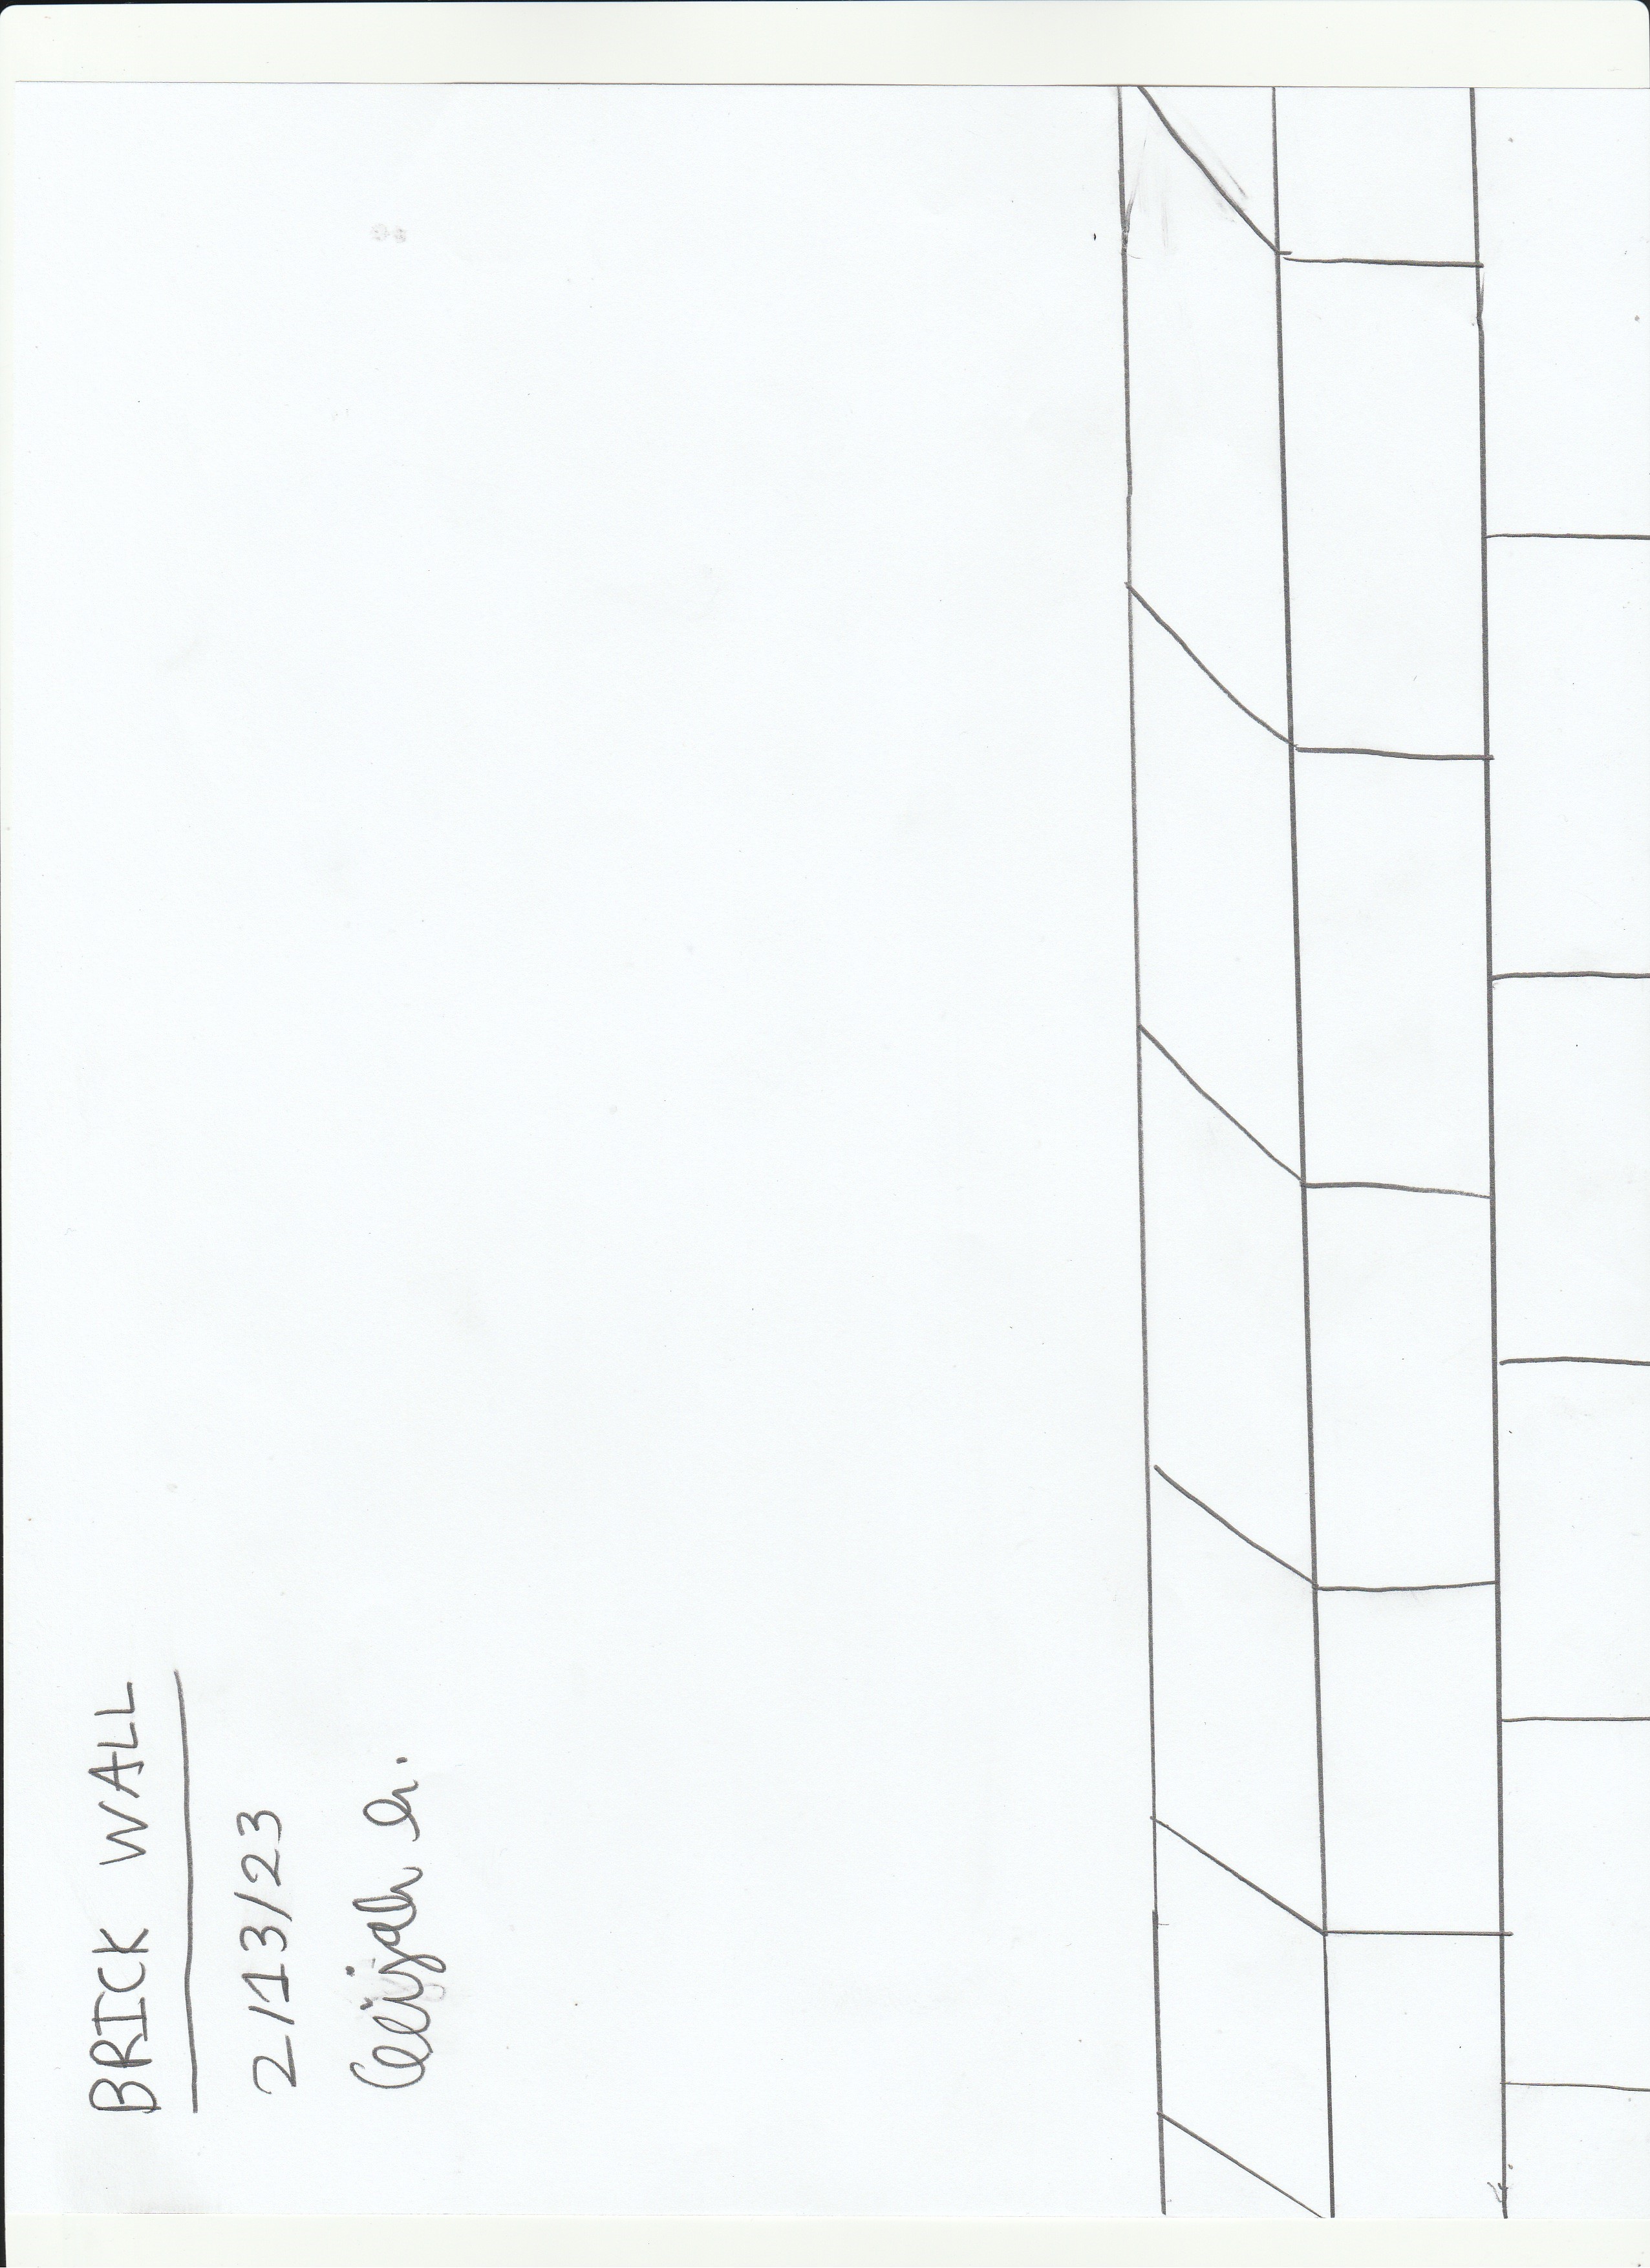 BRICK WALL
2/13/23
Elijah h.